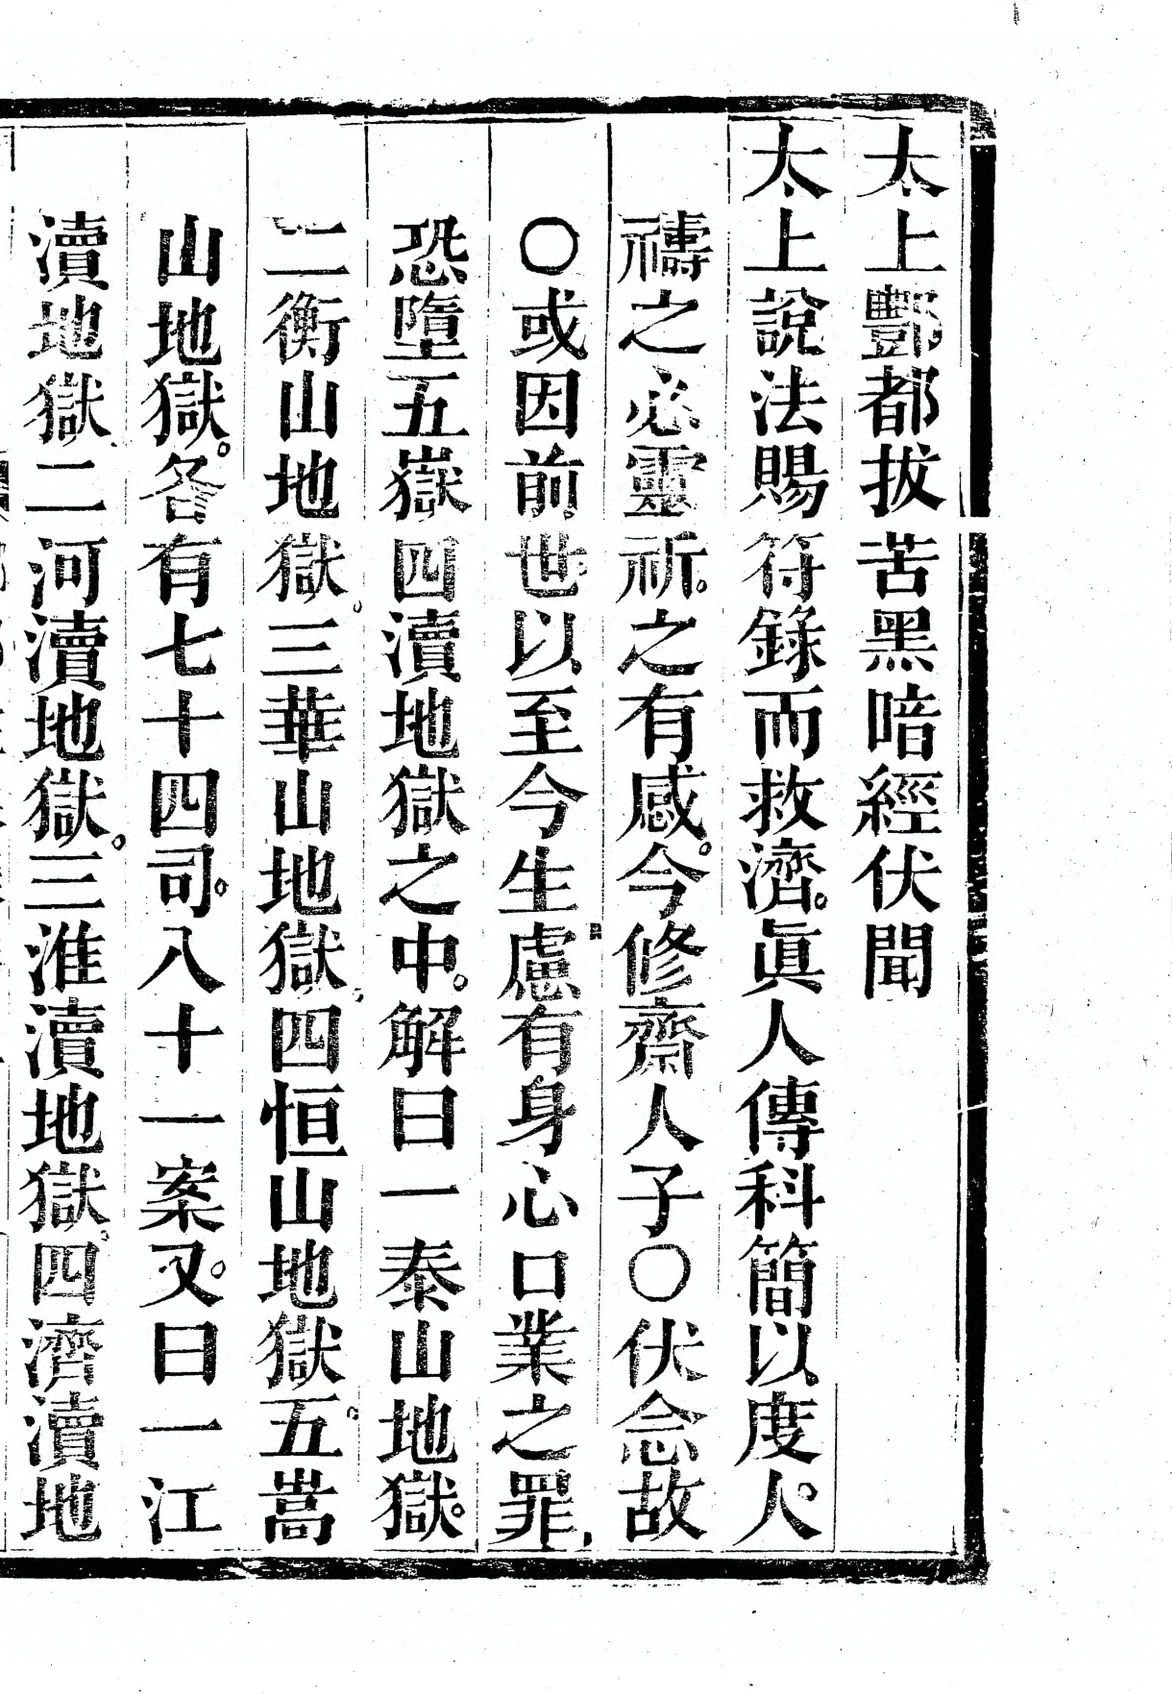 太上酆都拔苦黑暗經伏聞
太上說法賜符錄而救濟。眞人傳科簡以度人。
禱之必靈祈。之有感。今修齋人子〇伏念故
〇或因前世以至今生慮有身心口業之罪、
恐墮五嶽四瀆地獄之中。解曰一泰山地獄。
二衡山地獄。三華山地獄。四恒山地獄。五嵩
山地獄。各有七十四司。八十一案又。曰一江
瀆地獄、二河瀆地獄。三淮瀆地獄。四濟瀆地